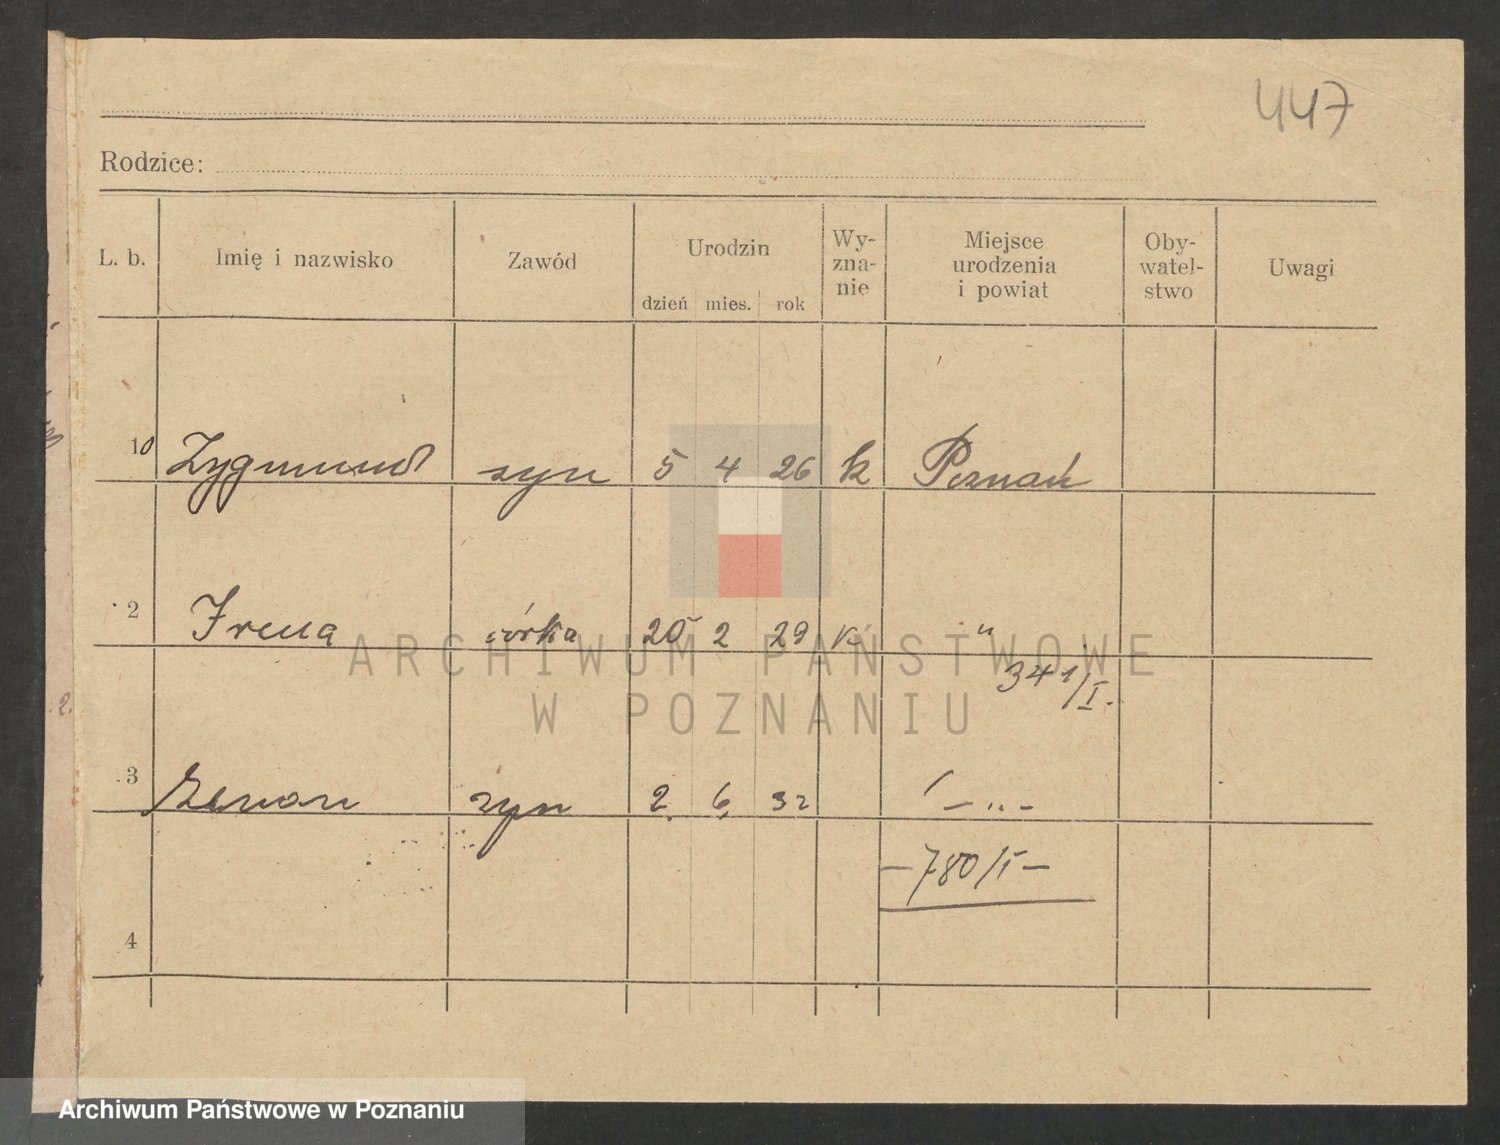 447
Rodzice:
L. b. Imię i nazwisko Zawód Urodzin dzień mies. rok Wy-zna-nie Miejsce urodzenia i powiat Oby-watel-stwo Uwagi
10 Zygmund syn 5 4 26 k Poznań
2 Irena córka 20 2 29 k "
341/I.
3 Zenon syn 2 6 32 – „ –
– 780/I –
4
ARCHIWUM PAŃSTWOWE
W POZNANIU
Archiwum Państwowe w Poznaniu